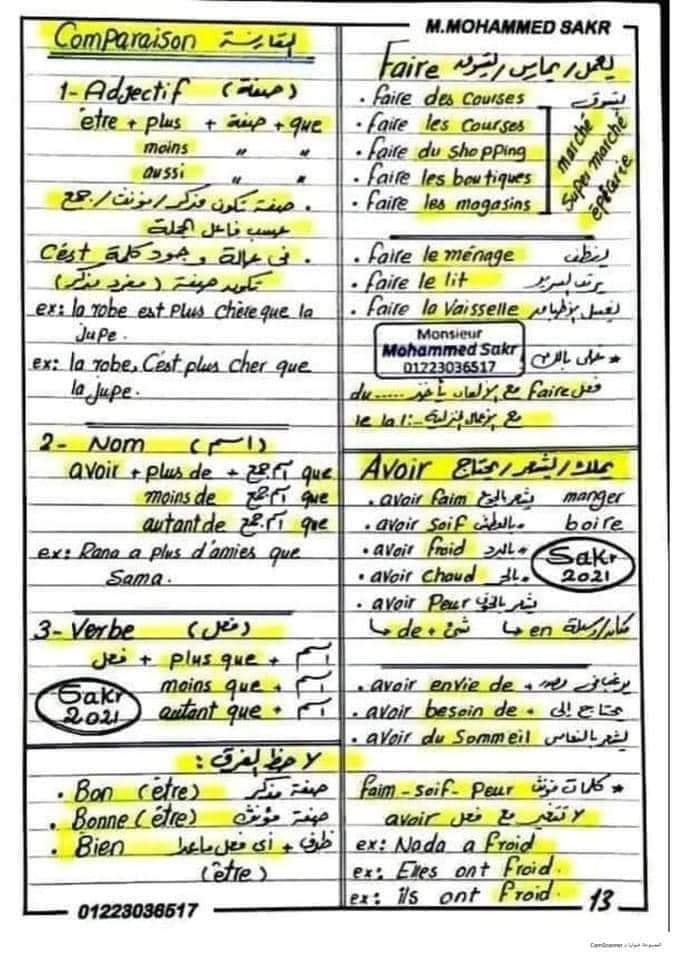 M.MOHAMMED SAKR
Comparaison المقارنة
1- Adjectif (صفة)
être + plus + صفة + que
moins " "
aussi " "
. صفة تكون مذكر/مؤنث/جمع
حسب فاعل الجملة
. فى حالة وجود كلمة C'ést
تكون صفة (مفرد مذكر)
ex: la robe est plus chère que la
jupe.
ex: la robe, C'est plus cher que
la jupe.
2- Nom (اسم)
avoir + plus de + اسم جمع que
moins de اسم جمع que
autant de اسم جمع que
ex: Rana a plus d'amies que
Sama.
3- Verbe (فعل)
فعل + plus que + اسم
moins que + اسم
autant que + اسم
Sakr
2021
لاحظ الفرق :
. Bon (être) صفة مذكر
. Bonne (être) صفة مؤنث
. Bien ظرف + أى فعل ماعدا
(être)
01223036517
Faire يعمل/يمارس/
. faire des courses يتسوق
. faire les courses
. faire du shopping
. faire les boutiques
. faire les magasins
marché
Super marché
épicerie
. faire le ménage ينظف
. faire le lit يرتب السرير
. faire la vaisselle يغسل
Monsieur
Mohammed Sakr
01223036517
* خلى بالك
فعل Faire مع الألعاب يأخذ ..... du
مع الأعمال المنزلية :- le la
Avoir يملك/يشعر/يحتاج
. avoir faim يشعر بالجوع manger
. avoir soif بالعطش boire
. avoir froid بالبرد
. avoir chaud
. avoir Peur يشعر بالخوف
Sakr
2021
de + شئ en
. avoir envie de + يرغب فى
. avoir besoin de + يحتاج إلى
. avoir du Sommeil يشعر بالنعاس
* كلمات مؤنث faim - soif - Peur
لا تتغير مع فعل avoir
ex: Nada a froid
ex: Elles ont froid.
ex: ils ont froid.
13
CamScanner